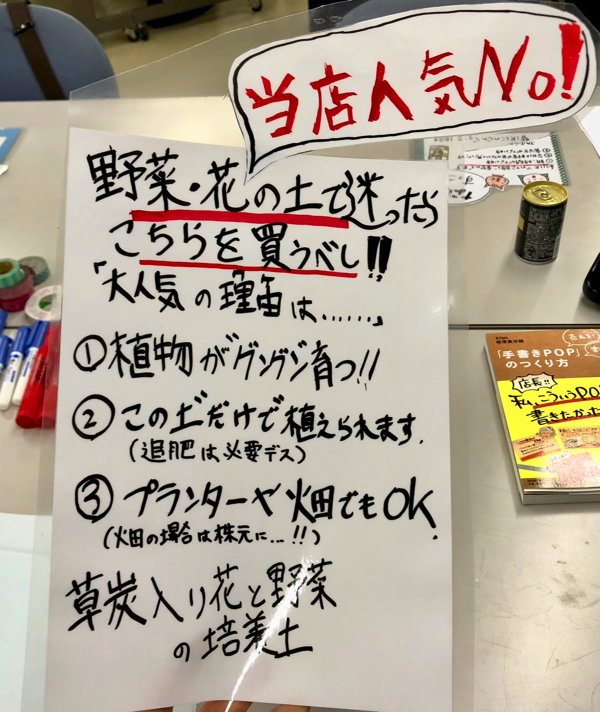 当店人気No!
野菜・花の土で迷ったら
こちらを買うべし!!
「大人気の理由は……」
①植物がグングン育つ!!
②この土だけで植えられます.
(追肥は必要デス)
③プランターや畑でもOK.
(畑の場合は株元に…!!)
草炭入り花と野菜
の培養土
「手書きPOP」
のつくり方
店長!!
私、こういうPO
書きたかった